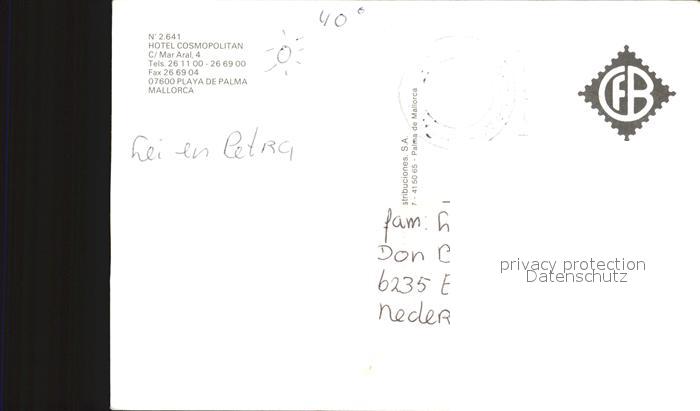 40°
N° 2.641
HOTEL COSMOPOLITAN
C/ Mar Aral, 4
Tels. 26 11 00 - 26 69 00
Fax 26 69 04
07600 PLAYA DE PALMA
MALLORCA
en Petra
stribuciones, S.A.
- 41 50 65 - Palma de Mallorca
fam:
Don
6235 E
neder
privacy protection
Datenschutz